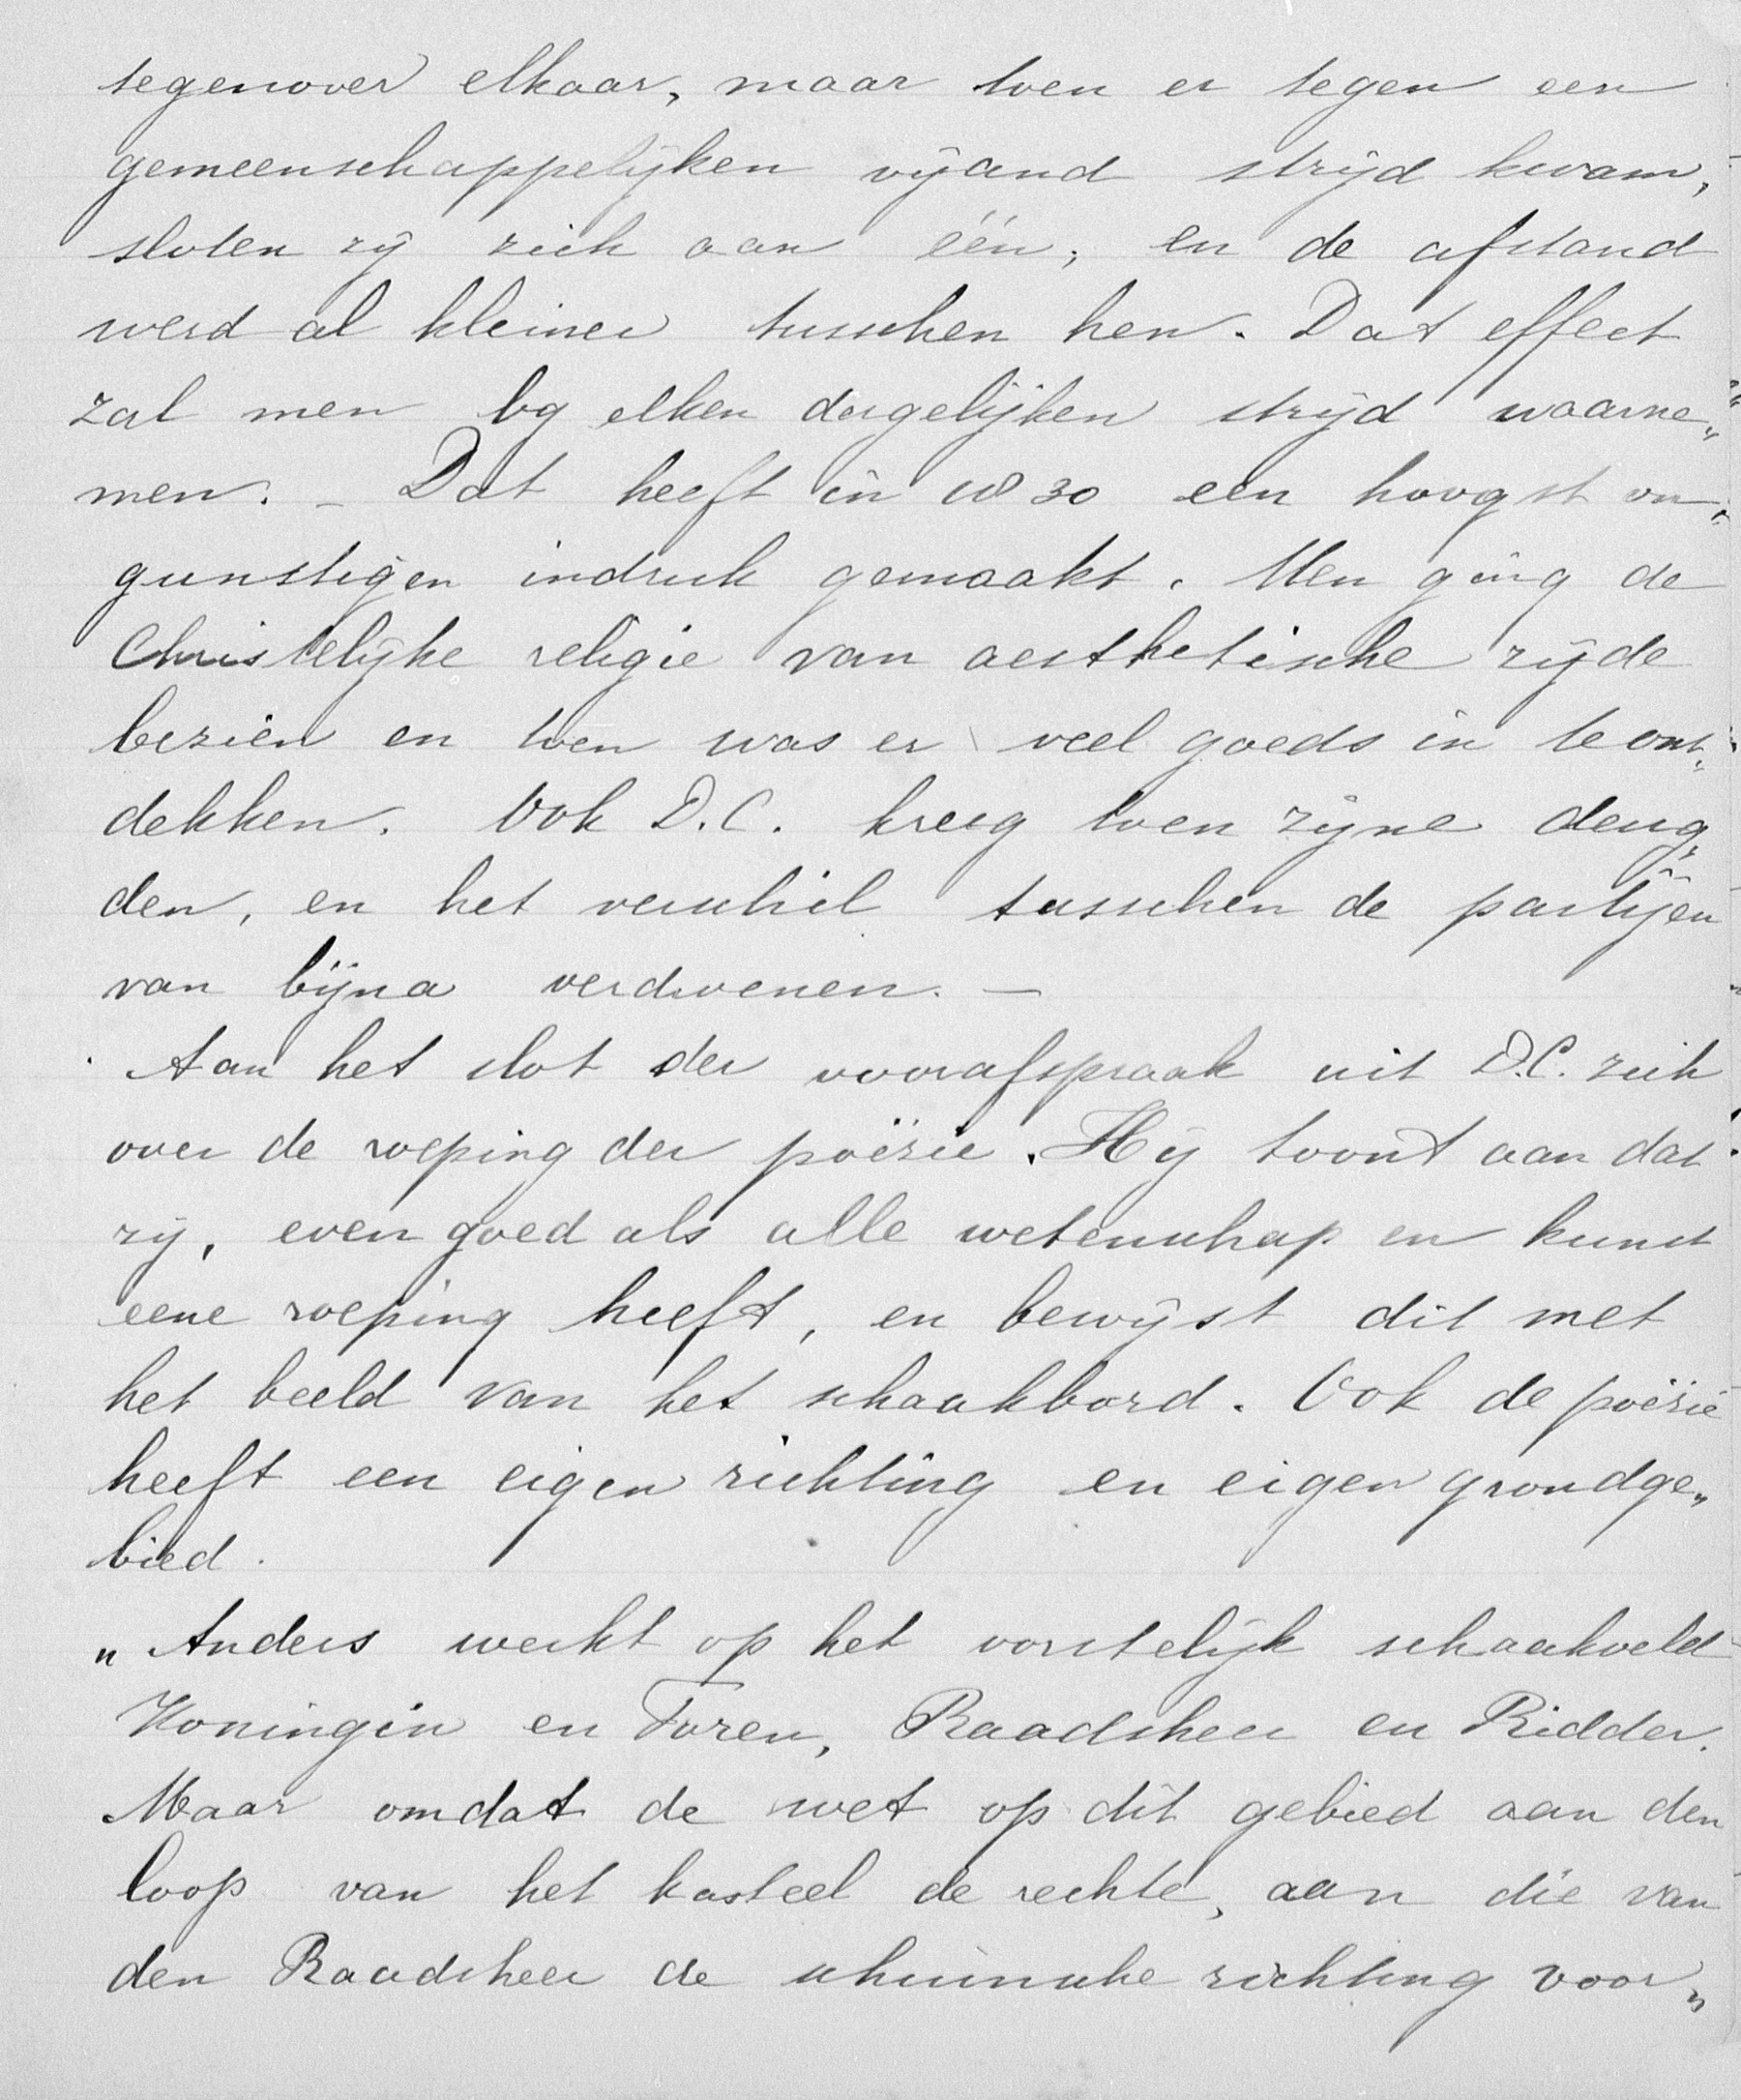 tegenover elkaar, maar toen er tegen een
gemeenschappelijken vijand strijd kwam,
sloten zij zich aan één, en de afstand
werd al kleiner tusschen hen. Dat effect
zal men by elken dergelijken strijd waarne„
men. – Dat heeft in 1830 een hoogst on„
gunstigen indruk gemaakt. Men ging de
Christelijke religie van aesthetische zijde
bezien en toen was er veel goeds in te ont„
dekken. Ook D.C. kreeg toen zijne deug„
den, en het verschil tusschen de partijen
van bijna verdwenen. –
Aan het slot der voorafspraak uit D.C. zich
over de roeping der poëzie. Hij toont aan dat
zij, even goed als alle wetenschap en kunst
eene roeping heeft, en bewijst dit met
het beeld van het schaakbord. Ook de poëzie
heeft een eigen richting en eigen grondge„
bied.
„Anders werkt op het vorstelijk schaakveld
Koningin en Toren, Raadsheer en Ridder.
Maar omdat de wet op dit gebied aan den
loop van het kasteel de rechte, aan die van
den Raadsheer de schuinsche richting voor„